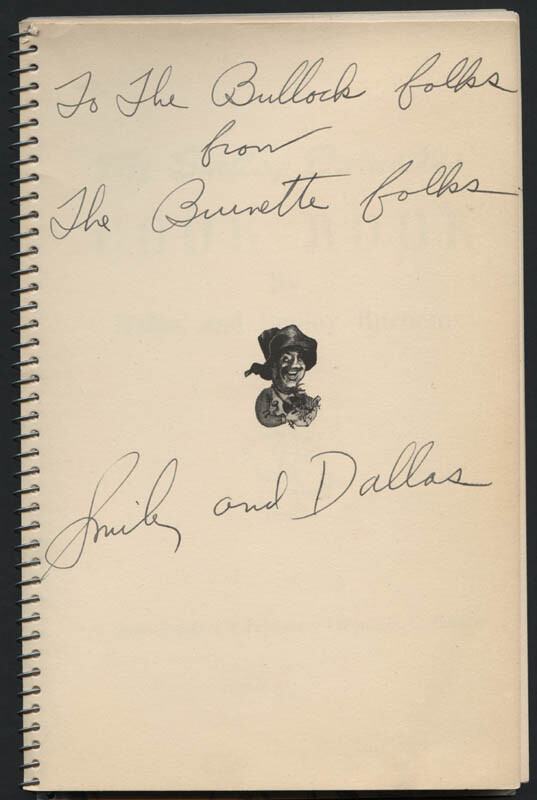 To The Bullock folks
from
The Burnette folks
Smiley and Dallas